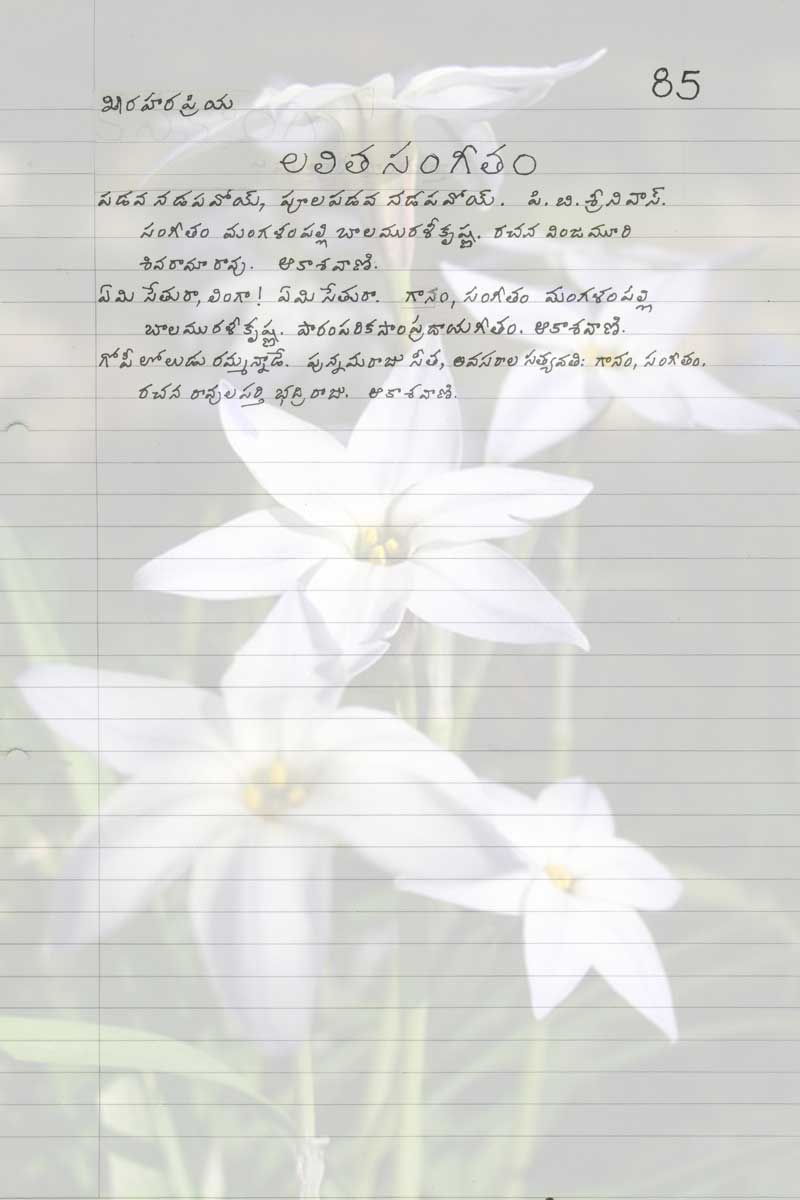 85
ఖరహరప్రియ
లలిత సంగీతం
పడవ నడపవోయ్, పూలపడవ నడపవోయ్. పి. బి. శ్రీనివాస్.
సంగీతం మంగళంపల్లి బాలమురళీకృష్ణ. రచన వింజమూరి
శివరామా రావు. ఆకాశవాణి.
ఏమి సేతురా, లింగా! ఏమి సేతురా. గానం, సంగీతం మంగళంపల్లి
బాలమురళీకృష్ణ. పారంపరికసాంప్రదాయగీతం. ఆకాశవాణి.
గోపీ లోలుడు రమ్మన్నాడే. పున్నమరాజు సీత, అవసరాల సత్యవతి: గానం, సంగీతం.
రచన రావులపర్తి భద్రిరాజు. ఆకాశవాణి.